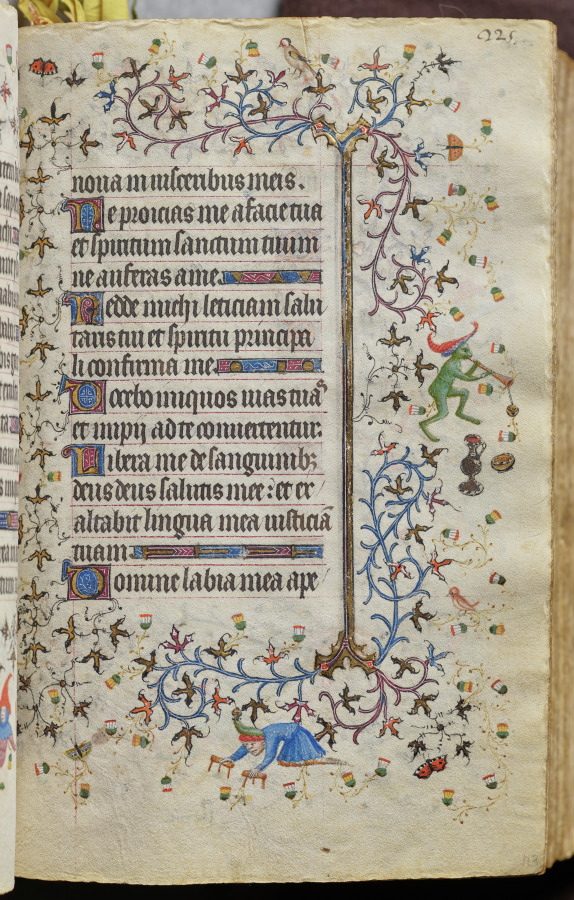 225
noua in uisceribus meis.
Ne proicias me a facie tua
et spiritum sanctum tuum
ne auferas a me
Redde michi leticiam salu
taris tui et spiritu principa
li confirma me
Docebo iniquos uias tuas
et impij ad te conuertentur.
Libera me de sanguinibz
deus deus salutis mee: et ex
altabit lingua mea iusticiā
tuam
Domine labia mea ape